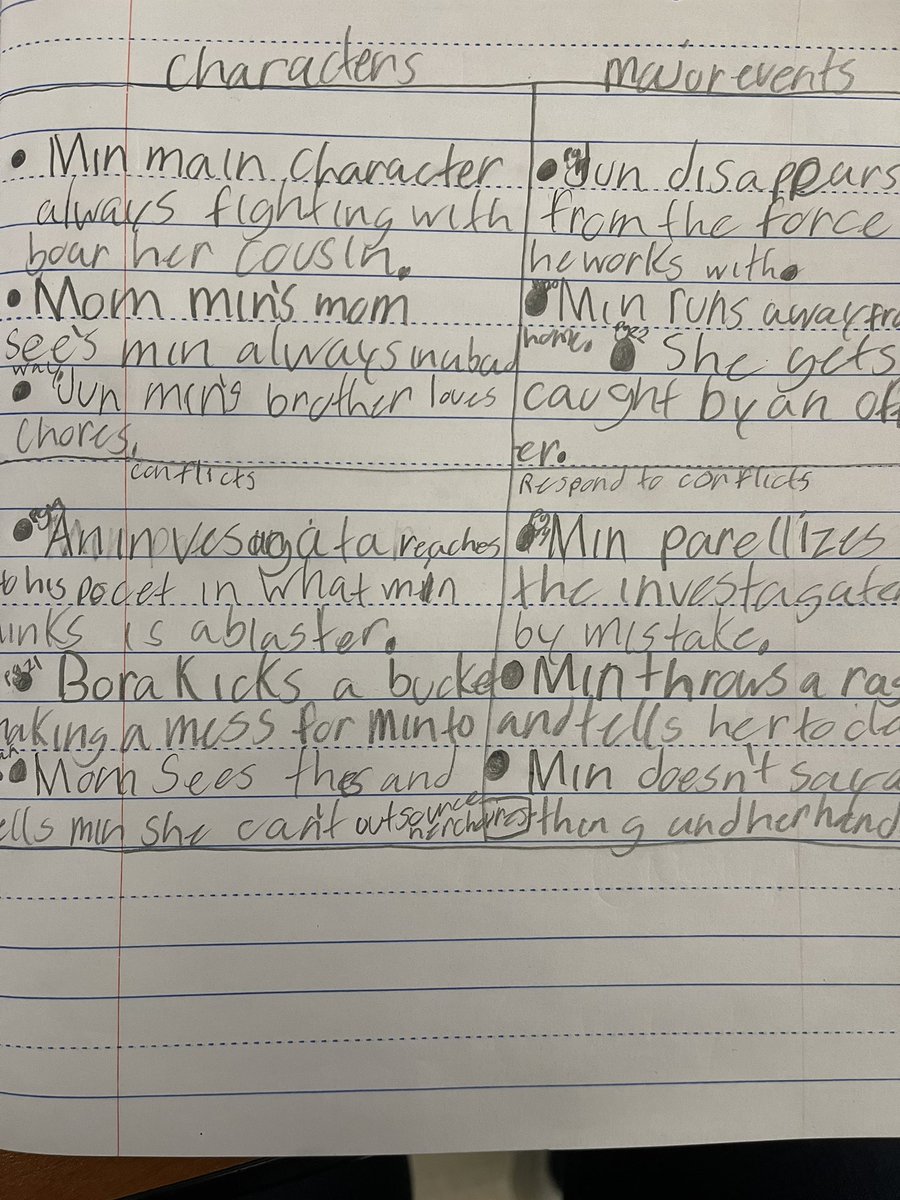 Characters
• Min main character
always fighting with
boar her cousin.
• Mom min's mom
see's min always in a bad
way
• Jun min's brother loves
chores.
major events
• Jun disappears
from the force
he works with.
• Min runs away fro
home. • She gets
caught by an of
er.
conflicts
• An invesagata reaches
to his pocet in what min
inks is a blaster.
pg21 • Bora Kicks a bucket
naking a mess for min to
• Mom sees thes and
ells min she can't outsource
her chores
Respond to conflicts
• Min parellizes
the investagate
by mistake.
• Min throws a rag
and tells her to cla
• Min doesn't say a
thing und her hand